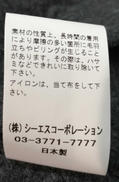 素材の性質上、長時間の着用
により摩擦の多い箇所に毛羽
立ちやピリングが生じること
があります。その際は、ハサ
ミなどできれいに取り除いて下
さい。
アイロンは、当て布をして下
さい。
(株)シーエスコーポレーション
03-3771-7777
日本製